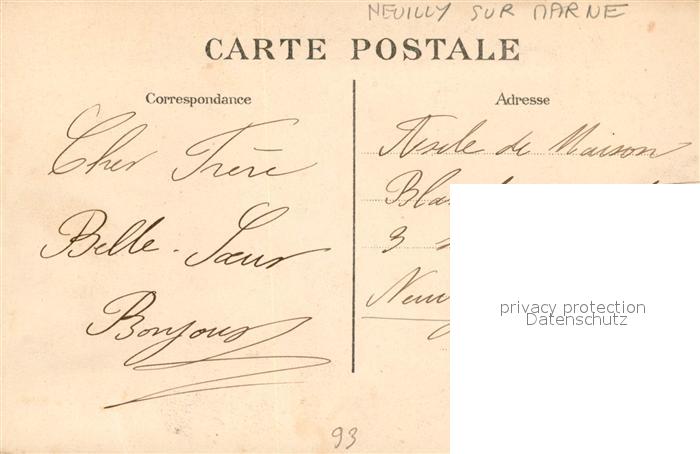 NEUILLY SUR MARNE
CARTE POSTALE
Correspondance
Cher Frère
Belle-Sœur
Bonjour
Adresse
Asile de Maison
3
93
privacy protection
Datenschutz